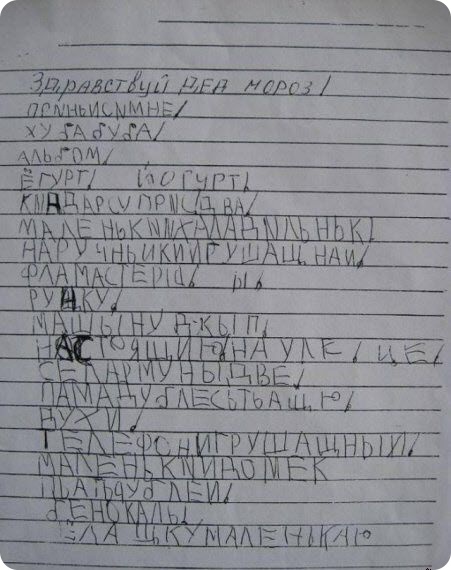 ЗДРАВСТВУЙ ДЕД МОРОЗ/
ПРИНЬИСИМНЕ/
ХУБАБУБА/
АЛЬБОМ/
ЁГУРТ/ ЙОГУРТ/
КИНДАРСУПРИСДВА/
МАЛЕНЬКИИХАЛАДИЛЬНЬК/
НАРУЧНЬИКИИГРУШАЩНАИ/
ФЛАМАСТЕРЫ/ Ы/
РУЧКУ/
МАШЫНУ ДЖЫП/
НАСТОЯЩИЮ/НА УЛЕ/ ЦЕ/
СЕЛАРМУНЫДВЕ/
ПАМАДУБЛЕСЬТЬАЩЮ/
ВУХИ/
ТЕЛЕФОНИГРУШАЩНЫЙ/
МАЛЕНЬКИИДОМЕК
БЕНОКАЛЫ/
ЁЛАЩКУМАЛЕНЬКАЮ